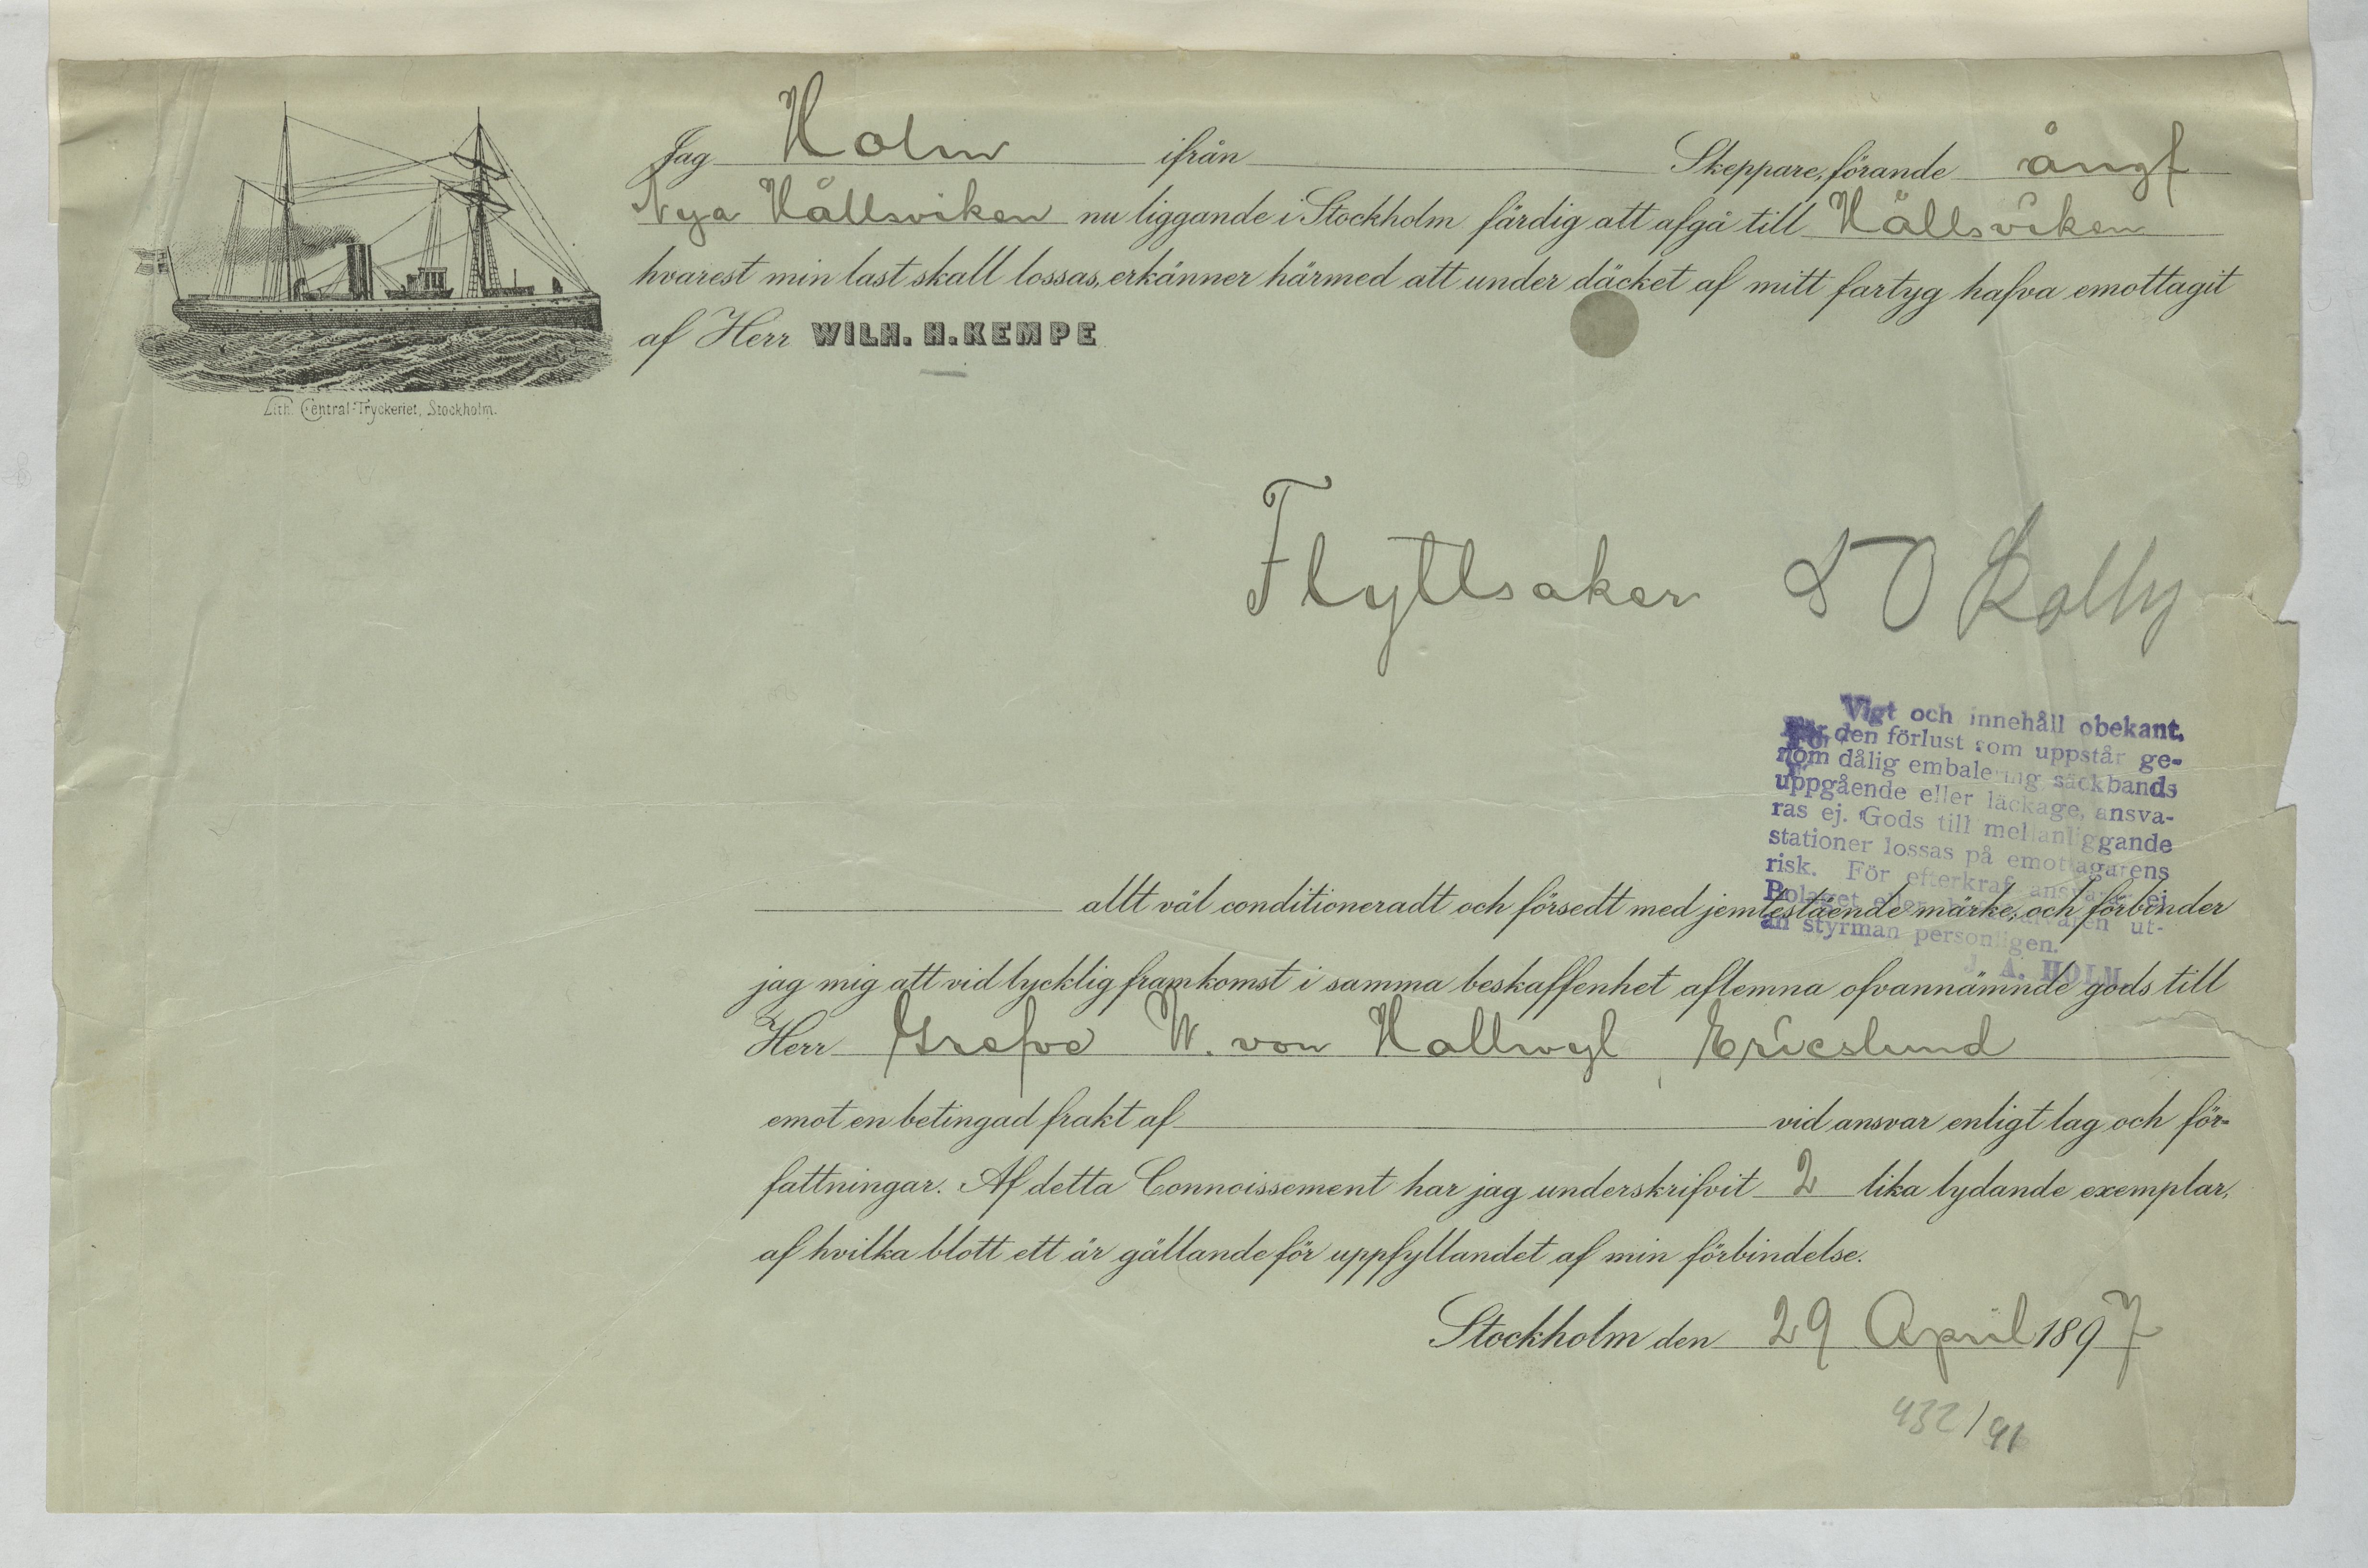 Jag Holm ifrån Skeppare, förande ångf
Nya Hällsviken nu liggande i Stockholm färdig att afgå till Hällsviken
hvarest min last skall lossas, erkänner härmed att under däcket af mitt fartyg hafva emottagit
af Herr WILH. H. KEMPE
Lith. Central-Tryckeriet, Stockholm.
Flyttsaker 50 kolly
Vigt och innehåll obekant.
För den förlust som uppstår ge-
nom dålig embalering säckbands
uppgående eller läckage, ansva-
ras ej. Gods till mellanliggande
stationer lossas på emottagarens
risk. För efterkraf ansvarar ej
Bolaget eller befälhafvaren ut-
an styrman personligen.
J. A. HOLM.
allt väl conditioneradt och försedt med jemtestående märke, och förbinder
jag mig att vid lycklig framkomst i samma beskaffenhet aflemna ofvannämnde gods till
Herr Grefve W. von Hallwyl Ericslund
emot en betingad frakt af vid ansvar enligt lag och för-
fattningar. Af detta Connoissement har jag underskrifvit 2 lika lydande exemplar,
af hvilka blott ett är gällande för uppfyllandet af min förbindelse.
Stockholm den 29 April 1897
432/91